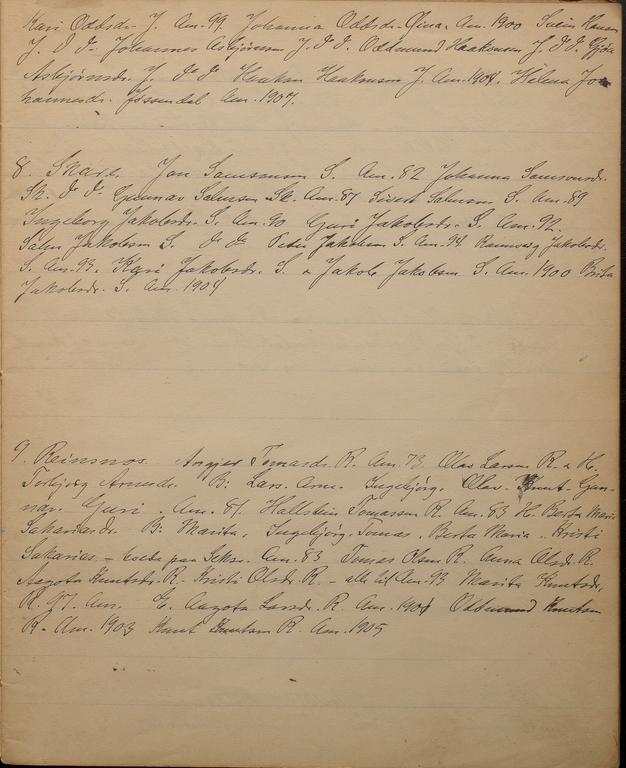 Kari Oddsdr. J. Am. 99. Johanna Oddsdr. Am. 1900 Svein
J. d d. Johannes Asbjörnson J. d d. Oddmund Haakonson J. d d.
Asbjörnsdr. J. d d Haakon Haakonson J. Am. 1904. Helena Jo-
hannesdr. Jösendal Am. 1907.
8. Skare. Jon Samsonson S. Am. 82 Johanna Samsonsdr.
Sk. d d. Gunnar Salmson Sk. Am. 87 Sivert Salmson S. Am. 89
Ingeborg Jakobsdr. S. Am. 90 Guri Jakobsdr. S. Am. 92.
Salm Jakobson S. d d. Peder Jakobson S. Am. 94. Rannveig Jakobsdr.
S. Am. 93. Kari Jakobsdr. S. & Jakob Jakobson S. Am. 1900 Brita
Jakobsdr. S. Am. 1904
9. Reinsnos. Tomasdr. R. Am. 73. Olav Larson R. & H.
Torbjörg Arnesdr. B: Lars. Arne. Ingebjörg. Olav. Knut Gun-
nar. Guri. Am. 81. Hallstein Tomasson R. Am. 83 H. Berta Maria
Sakariasdr. B: Marita, Ingebjörg. Tomas. Berta Maria. Kristi
Sakarias. – Am. 83 Tomas Olson R. Anna Olsdr. R.
Aagota Knutsdr. R. Kristi Olsdr. R. – alle til Am. 93 Marita Knutsdr.
R. 97. Am. E. Aagota Larsdr. R. Am. 1904 Oddmund Knutson
R. Am. 1903 Knut Knutson R. Am. 1905